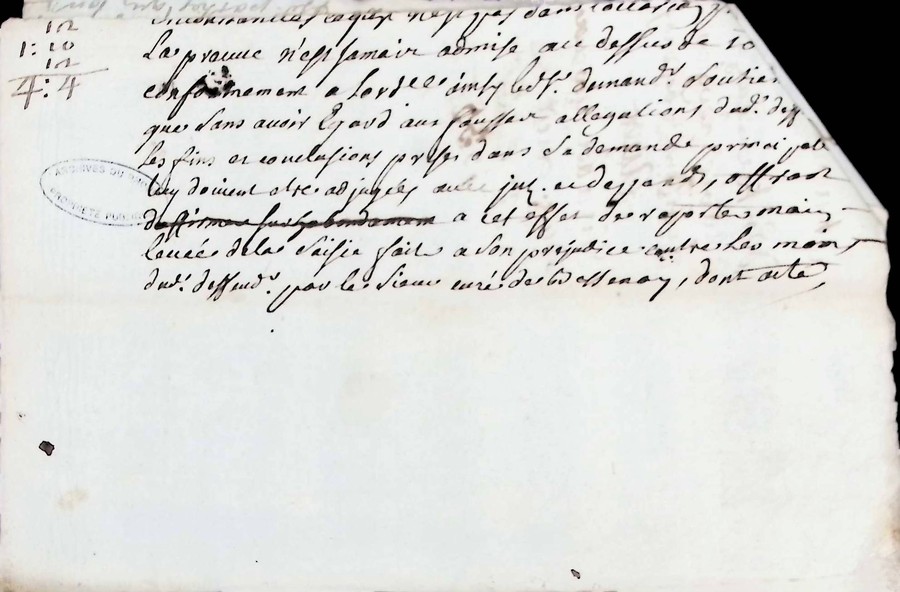 12
1: 10
12
4: 4
n'est pas dans
La preuve n'est jamais admise au dessus de 10
conformement a lord.ce ainsy led.t demand.r soutient
que sans avoir Egard aux fausses allegations dud.t deff.
les fins et conclusions prises dans sa demande principale
luy doivent etre adjugées avec et despends, offrant
a cet effet de raporter main
levée de la saisie faite a son prejudice entre les mains
dud.t deffend.r par le sieur curé de dont acte,
ARCHIVES DU
PROPRIETE PUBLIQUE